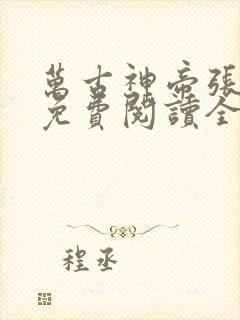 萬古神帝張
免費閱讀全
程丞